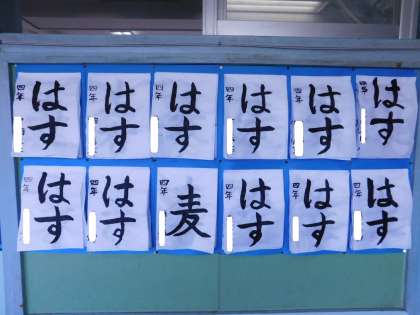 はす
四年
はす
四年
はす
四年
はす
四年
はす
四年
はす
四年
はす
四年
はす
四年
麦
四年
はす
四年
はす
四年
はす
四年